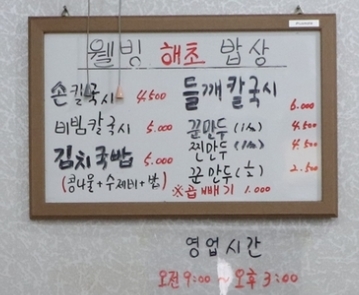 웰빙 해초 밥상
손칼국시 4.500
비빔칼국시 5.000
김치국밥 5.000
(콩나물+수제비+밥)
들깨칼국시 6.000
꾼만두(1人) 4.500
찐만두(1人) 4.500
꾼만두(½) 2.500
※곱빼기 1.000
영업시간
오전 9:00 ~ 오후 3:00